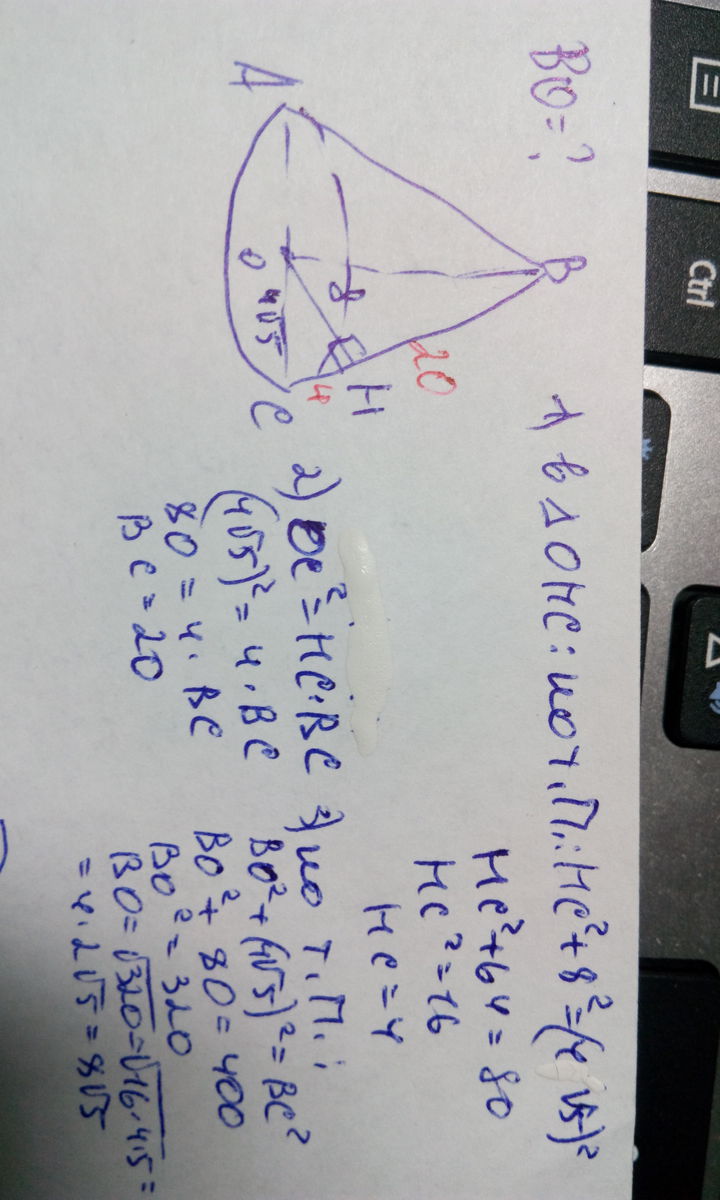 BO=?
A
B
O
4√5
8
H
4
20
C
1) в △OHC: по т.П.: HC²+8²=(4√5)²
HC²+64=80
HC²=16
HC=4
2) OC²=HC·BC
(4√5)²=4·BC
80=4·BC
BC=20
3) по т.П.:
BO²+(4√5)²=BC²
BO²+80=400
BO²=320
BO=√320=√16·4·5=
=4·2√5=8√5
Ctrl